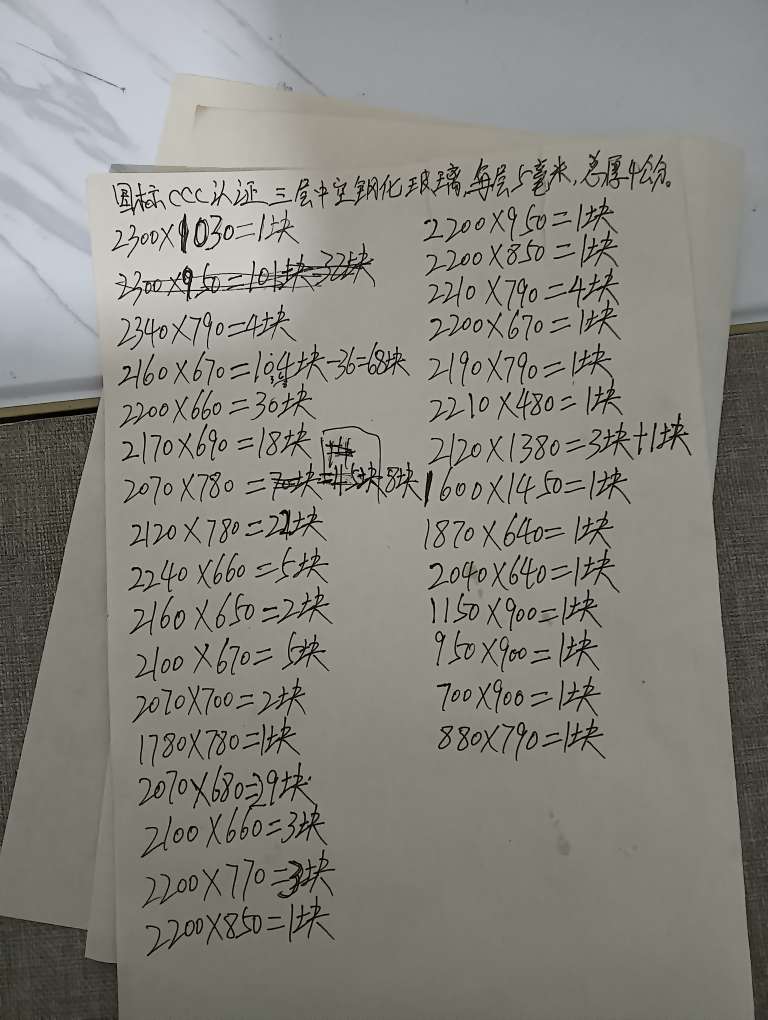 国标CCC认证三层中空钢化玻璃,每层5毫米,总厚4公分。
2300×1030=1块
2300×950=101块-32块
2340×790=4块
2160×670=104块-36=68块
2200×660=30块
2170×690=18块
2070×780=70块=45块8块
2120×780=21块
2240×660=5块
2160×650=2块
2100×670=5块
2070×700=2块
1780×780=1块
2070×680=29块
2100×660=3块
2200×770=3块
2200×850=1块
2200×950=1块
2200×850=1块
2210×790=4块
2200×670=1块
2190×790=1块
2210×480=1块
2120×1380=3块+1块
1600×1450=1块
1870×640=1块
2040×640=1块
1150×900=1块
950×900=1块
700×900=1块
880×790=1块